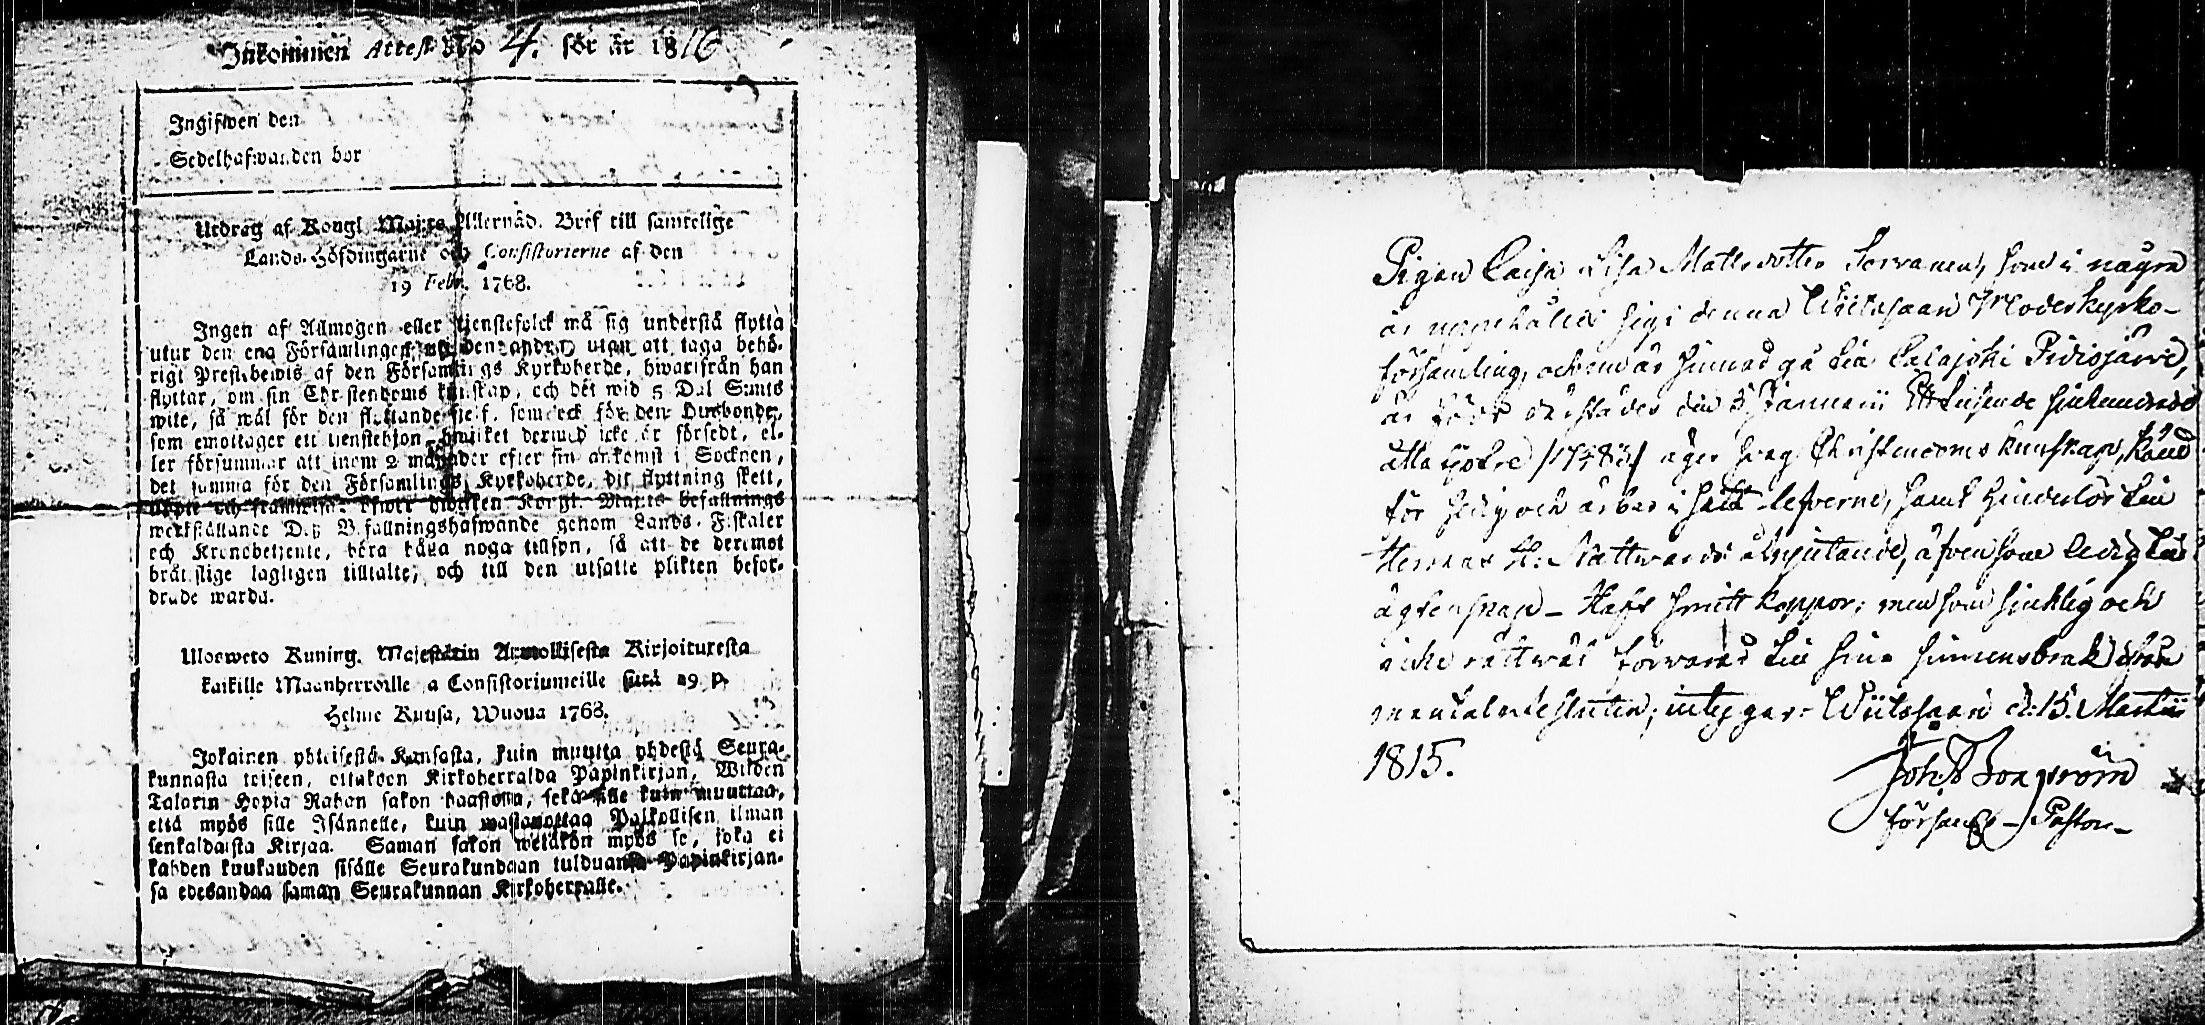 Inkommen Attest N:o 4. för år 1816
Ingifwen den
Sedelhafwanden bor
Utdrag af Kongl. Maj:ts Allernåd. Bref till samtelige
Lands-Höfdingarne och Consistorierne af den
19 Febr. 1768.
Ingen af Allmogen eller tjenstefolck må sig understå flytta
utur den ena Församlingen uti den andra, utan att taga behö-
rigt Prestebewis af den Församlings Kyrkoherde, hwarifrån han
flyttar, om sin Christendoms kunskap, och det wid 5 Dal. S:mts
wite, så wäl för den flyttande sjelf, som ock för den Husbonde,
som emottager ett tienstehjon, hwilket dermed icke är försedt, el-
ler försummar att inom 2 månader efter sin ankomst i Socknen,
det samma för den Församlings Kyrkoherde, dit flyttning skett,
öfwer hwilken Kongl. Maj:ts befallnings
werkställande Deß Befallningshafwande genom Lands-Fiskaler
och Kronobetjente, böra hålla noga tillsyn, så att de deremot
brått slige lagligen tilltalte, och till den utsatte plikten befor-
drade warda.
Ulosweto Kuning. Majestätin Armollisesta Kirjoituxesta
kaikille Maanherroille ja Consistoriumeille siitä 19 p.
Helme Kuusa, Wuona 1768.
Jokainen yhteisestä Kansasta, kuin muutta yhdestä Seura-
kunnasta toiseen, ottakoon Kirkoherralda Papinkirjan, Wiiden
Talarin Hopia Rahan sakon haastolla, sekä sille kuin muuttaa,
että myös sille Isännelle, kuin wastanottaa Palkollisen ilman
senkaldaista Kirjaa. Saman sakon wetäkön myös se, joka ei
kahden kuukauden sisälle Seurakundaan tulduansa Papinkirjan-
sa edesandaa saman Seurakunnan Kirkoherralle.
Pigan Caisa Lisa Mattsdotter Sorvanen, som i några
år uppehållit sig i denna Wiitasaari Moderkyrko-
församling, och nu är sinnad gå till Calajoki Pidisjärvi,
är född därstädes den 5 Januarii Ett tusende sjuhundrade
åtta /178/ äger svag Christendoms kunskap, känd
för sedig och ärbar i lefverne, samt hinderlös till
Herrans H: Nattvards åtnjutande, äfven som ledig till
ägtenskap - Haft koppor; men som sjuklig och
icke rätt väl förvarad till sina sinnens bruk
mantalsutesluten; intygar. Wiitasaari d: 15. Martii
1815.
Joh.
Församl - Pastor -